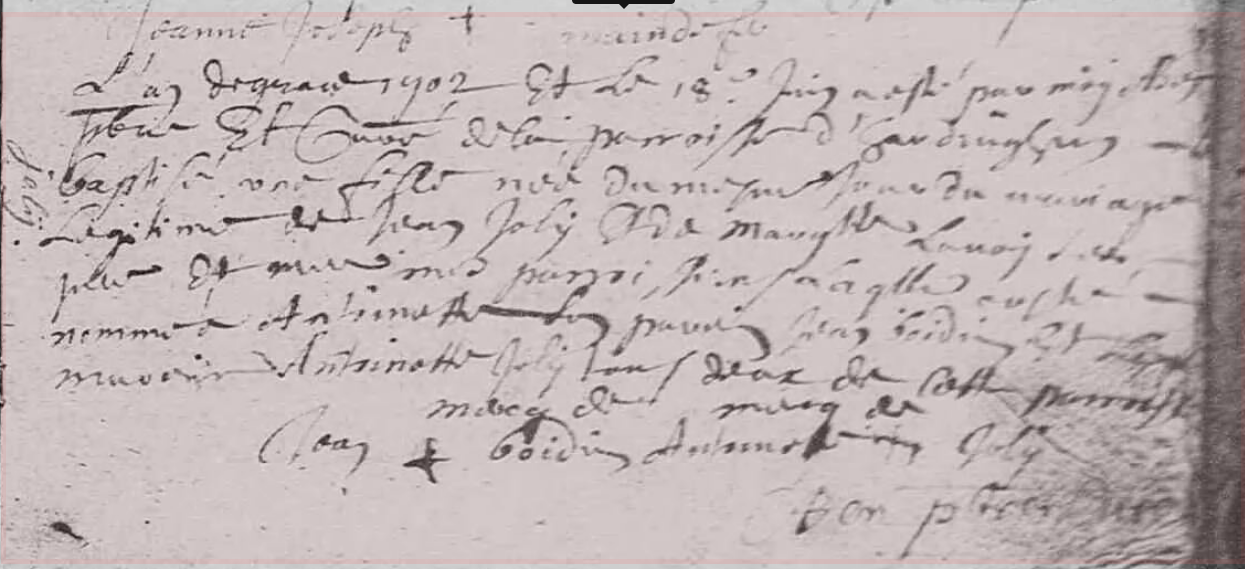 Jeanne Joseph +
L'an de grace 1702 Et Le 18.e Juin a esté par moy
pbre Et Curé de la parroisse d'hardinghen
Joly
baptisé une fille née du mesme Jour du mariage
Legitime de Jean Joly Et de Margtte
pere Et mere mes parroissiens a laqlle
nommée Antoinette Son parein Jean boidin Et
mareine Antoinette Joly tous deux de cette parroisse
merq de merq de
Jean + boidin Antoinette Joly